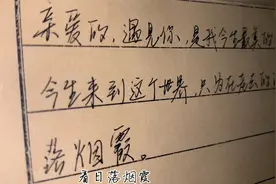 亲爱的，遇见你，是我今生最美的
今生来到这个世界，只为在每去的
落烟霞。
看日落烟霞